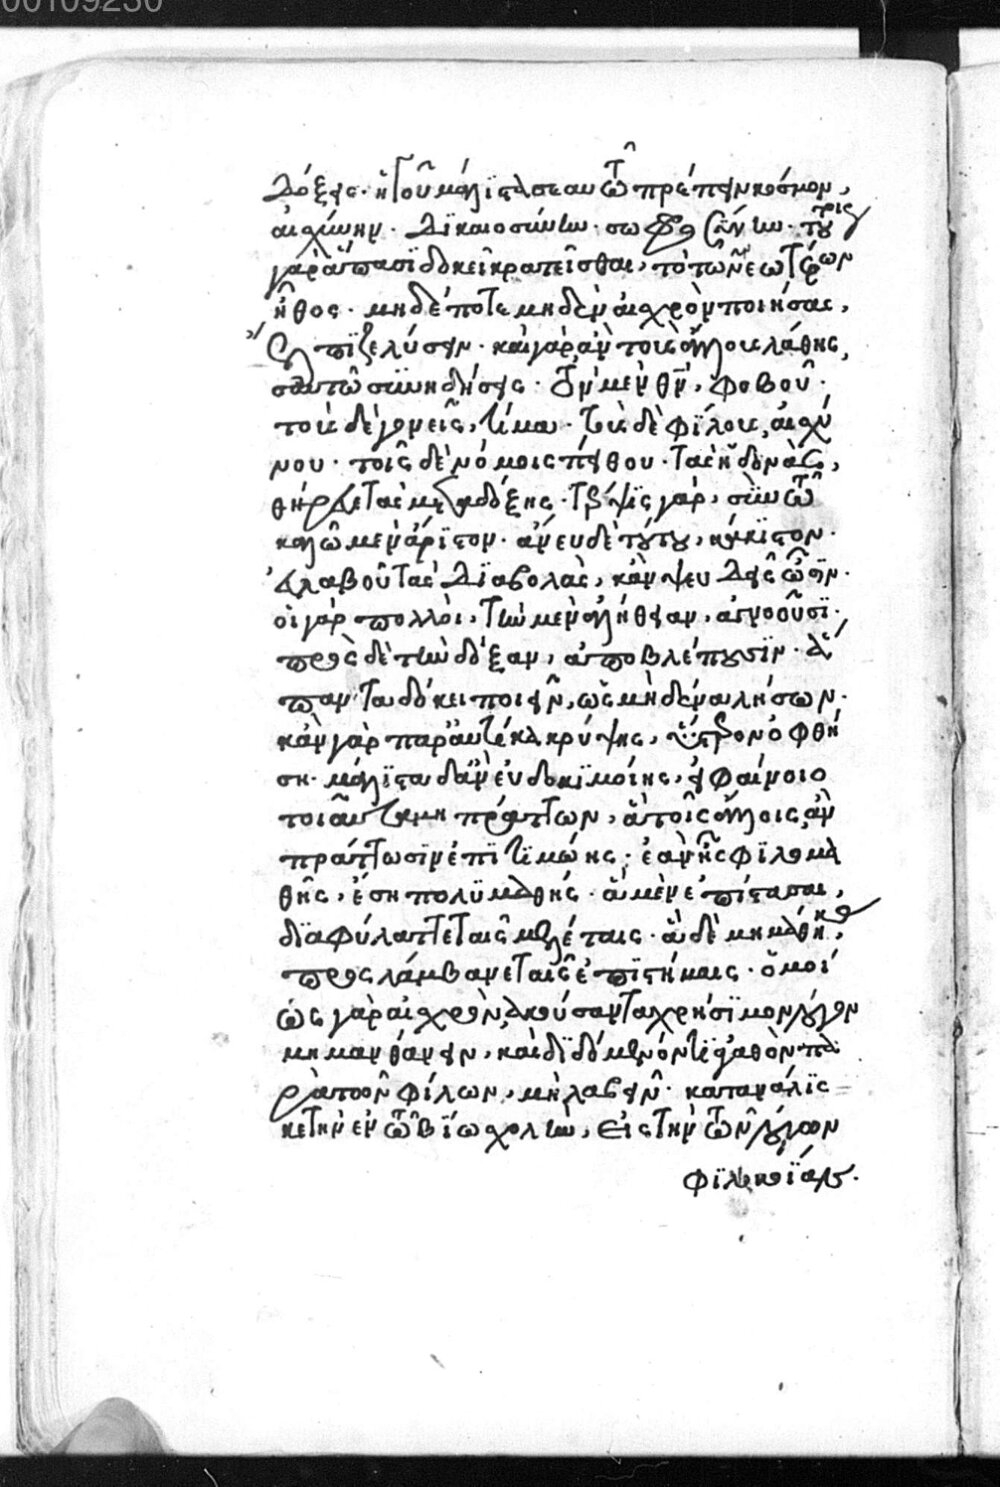 00109230
δόξῃς· ἡγοῦ μάλιστα σεαυτῷ πρέπειν κόσμον,
αἰσχύνην· δικαιοσύνην· σωφροσύνην· τούτοις
γὰρ ἅπασι δοκεῖ κρατεῖσθαι, τὸ τῶν νεωτέρων
ἦθος· μηδέποτε μηδὲν αἰσχρὸν ποιήσας,
ἔλπιζε λύσειν· καὶ γὰρ ἂν τοὺς ἄλλους λάθῃς,
σαυτῷ συνηδήσεις· τὸν μὲν θν, φοβοῦ·
τοὺς δὲ γονεῖς, τίμα· τοὺς δὲ φίλους, αἰσχύ
νου· τοῖς δὲ νόμοις πείθου· τὰς ἡδονὰς,
θήρευε τὰς μετὰ δόξης· τέρψις γὰρ, σὺν τῶ
καλῶ μὲν ἄριστον· ἄνευ δὲ τούτου, κάκιστον·
εὐλαβοῦ τὰς διαβολὰς, κἂν ψευδεῖς ὦσιν·
οἱ γὰρ πολλοὶ, τὴν μὲν ἀλήθειαν, ἀγνοοῦσι·
πρὸς δὲ τὴν δόξαν, ἀποβλέπουσιν· ἅ
παντα δόκει ποιεῖν, ὡς μηδένα λήσων·
κἂν γὰρ παραυτίκα κρύψῃς, ὕστερον ὀφθή
ση· μάλιστα δ' ἂν εὐδοκιμοίης, εἰ φαίνοιο
τοιαῦτα μὴ πράττων, ἃ τοῖς ἄλλοις ἂν
πράττωσιν ἐπιτιμώης· ἐὰν ἦς φιλομα
θὴς, ἔση πολυμαθής· ἃ μὲν ἐπίστασαι,
διαφύλαττε ταῖς μελέταις· ἃ δὲ μὴ μεμάθηκας,
προσλάμβανε ταῖς ἐπιστήμαις· ὁμοί
ως γὰρ αἰσχρὸν, ἀκούσαντα χρήσιμον λόγον
μὴ μανθάνειν, καὶ διδόμενόν τι ἀγαθὸν πα
ρὰ τῶν φίλων, μὴ λαβεῖν· καταναλίσ
κε τὴν ἐν τῶ βίω σχολὴν, εἰς τὴν τῶν λόγων
φιληκοΐαν·